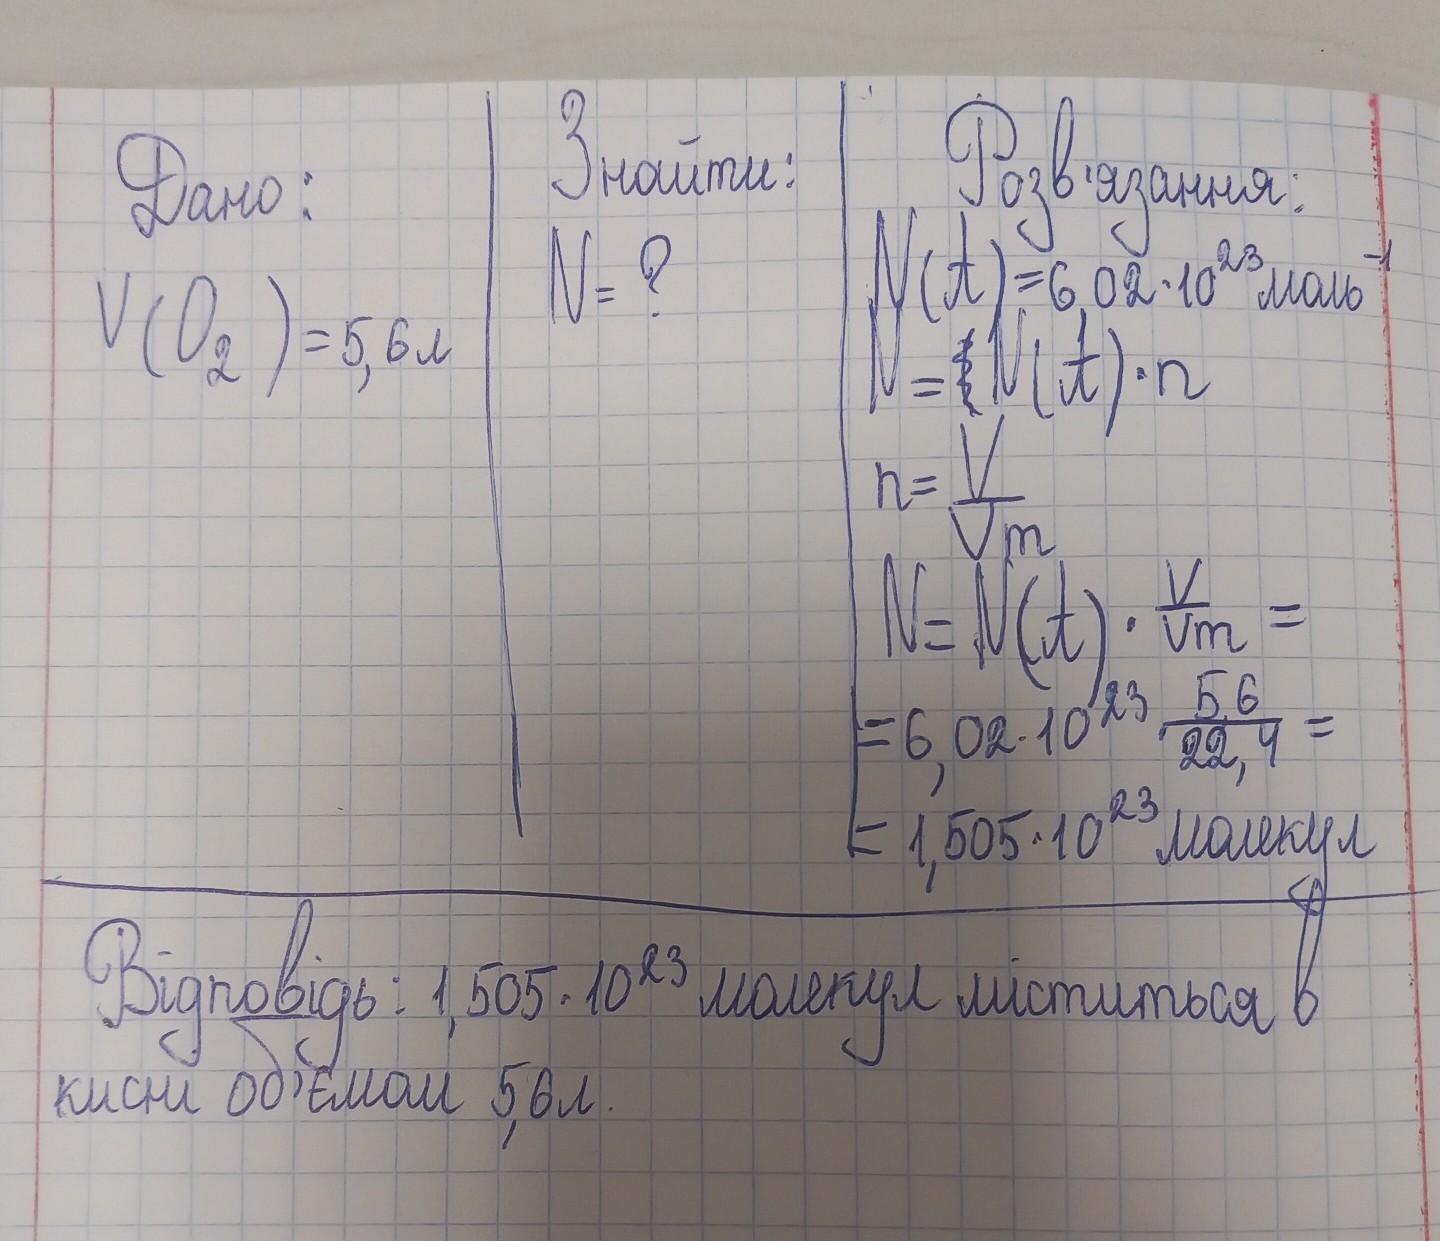 Дано:
V(O₂)=5,6л
Знайти:
N=?
Розв'язання:
N(t)=6,02·10²³моль⁻¹
N=N(t)·n
n=V/Vm
N=N(t)·V/Vm=
=6,02·10²³·5,6/22,4=
=1,505·10²³молекул
Відповідь: 1,505·10²³молекул міститься в
кисні об'ємом 5,6л.